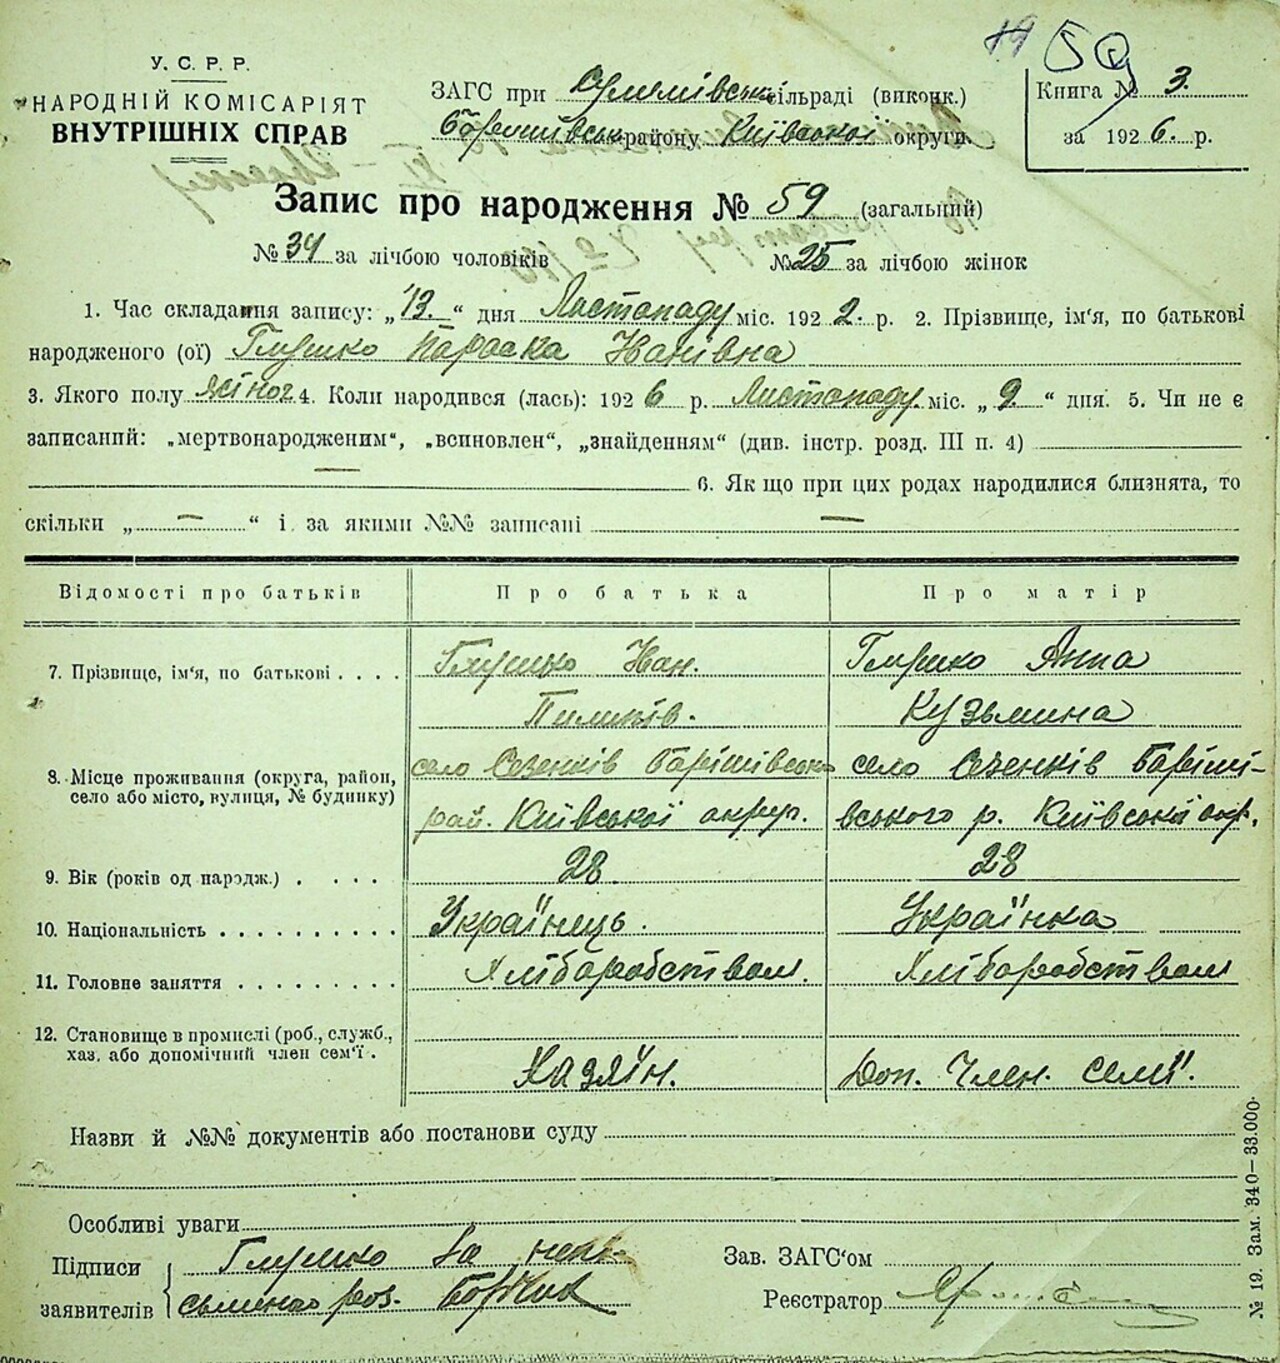 59
У. С. Р. Р.
НАРОДНІЙ КОМІСАРІЯТ
ВНУТРІШНІХ СПРАВ
ЗАГС при сільраді (виконк.)
району Київської округи
Книга № 3.
за 1926. р.
Запис про народження № 59 (загальний)
№ 34 за лічбою чоловіків № 25 за лічбою жінок
1. Час складання запису: „13.“ дня Листопаду міс. 1922. р. 2. Прізвище, ім‘я, по батькові
народженого (ої) Глушко Параска Іванівна
3. Якого полу жіноч 4. Коли народився (лась): 1926 р. Листопаду міс. „9.“ дня. 5. Чи не є
записаний: „мертвонародженим“, „всиновлен“, „знайденням“ (див. інстр. розд. III п. 4)
— 6. Як що при цих родах народилися близнята, то
скільки „ — “ і за якими №№ записані —
Відомості про батьків Про батька Про матір
7. Прізвище, ім‘я, по батькові . . . . Глушко Іван. Глушко Анна
Пилипів. Кузьмина
8. Місце проживання (округа, район, село або місто, вулиця, № будинку) село Сезенків Барішівськ село Сезенків Баріші-
рай. Київської округ. вського р. Київської окр.
9. Вік (років од народж.) . . . . 28. 28
10. Національність . . . . . . . . . . Українець. Українка
11. Головне заняття . . . . . . . . . Хліборобством. Хліборобством
12. Становище в промислі (роб., служб.,
хаз. або допомічний член сем‘ї . Хазяїн. Доп. Член. семї.
Назви й №№ документів або постанови суду
Особливі уваги
Підписи Глушко за непи-
заявителів сьменого роз.
Зав. ЗАГС‘ом
Реєстратор
№ 19. Зам. 340—33.000.